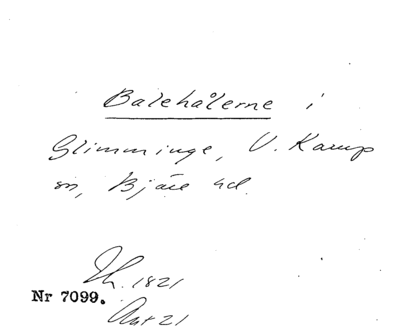 Balehålerne i
Glimminge, V. Karup
sn, Bjäre hd.
Th. 1821
Nr 7099.
Ant 21